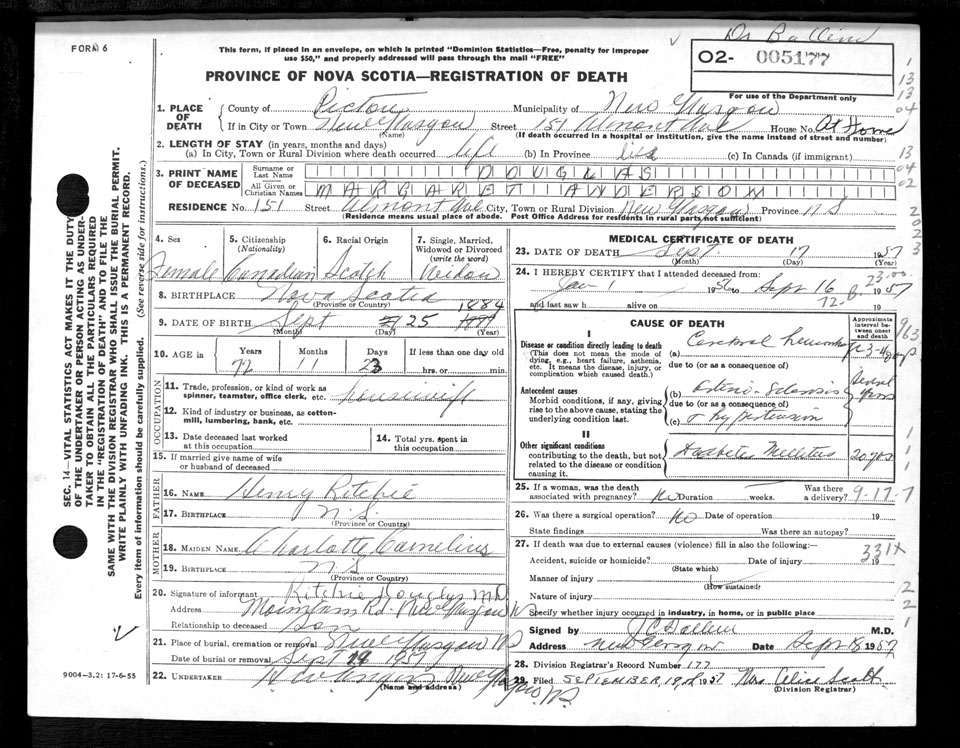 FORM 6
Dr Ballem
This form, if placed in an envelope, on which is printed "Dominion Statistics—Free, penalty for improper
use $50," and properly addressed will pass through the mail "FREE"
02- 005177
PROVINCE OF NOVA SCOTIA—REGISTRATION OF DEATH
For use of the Department only
1. PLACE OF DEATH
County of Pictou Municipality of New Glasgow
If in City or Town New Glasgow Street 151 Almont Ave House No. At Home
(Name) (If death occurred in a hospital or institution, give the name instead of street and number)
2. LENGTH OF STAY (in years, months and days)
(a) In City, Town or Rural Division where death occurred life (b) In Province life (c) In Canada (if immigrant)
3. PRINT NAME OF DECEASED
Surname or Last Name DOUGLAS
All Given or Christian Names MARGARET ANDERSON
RESIDENCE No. 151 Street Almont Ave City, Town or Rural Division New Glasgow Province N S
(Residence means usual place of abode. Post Office Address for residents in rural parts not sufficient)
4. Sex Female
5. Citizenship (Nationality) Canadian
6. Racial Origin Scotch
7. Single, Married, Widowed or Divorced (write the word) Widow
8. BIRTHPLACE Nova Scotia
(Province or Country)
9. DATE OF BIRTH Sept 25 1884
(Month) (Day) (Year)
10. AGE in Years 72 Months 11 Days 23 If less than one day old hrs. or min.
OCCUPATION
11. Trade, profession, or kind of work as spinner, teamster, office clerk, etc. housewife
12. Kind of industry or business, as cotton-mill, lumbering, bank, etc.
13. Date deceased last worked at this occupation
14. Total yrs. spent in this occupation
15. If married give name of wife or husband of deceased
FATHER
16. NAME Henry Ritchie
17. BIRTHPLACE N.S.
(Province or Country)
MOTHER
18. MAIDEN NAME Charlotte Cornelius
19. BIRTHPLACE N S
(Province or Country)
20. Signature of informant Ritchie Douglas M.D.
Address Mountain Rd. New Glasgow NS
Relationship to deceased son
21. Place of burial, cremation or removal New Glasgow NS
Date of burial or removal Sept 19 1957
22. UNDERTAKER New Glasgow, N.S.
(Name and address)
MEDICAL CERTIFICATE OF DEATH
23. DATE OF DEATH Sept. 17 1957
(Month) (Day) (Year)
24. I HEREBY CERTIFY that I attended deceased from:
Jan 1 1956 to Sept 16 1957
and last saw h alive on 19
CAUSE OF DEATH
Approximate interval between onset and death
I
Disease or condition directly leading to death
(This does not mean the mode of dying, e.g., heart failure, asthenia, etc. It means the disease, injury, or complication which caused death.)
(a) Cerebral hemorrhage
due to (or as a consequence of)
Antecedent causes
Morbid conditions, if any, giving rise to the above cause, stating the underlying condition last.
(b) Arterio Sclerosis several years
due to (or as a consequence of)
(c) + Hypertension
II
Other significant conditions
contributing to the death, but not related to the disease or condition causing it.
Diabetes Mellitus 20 yrs
25. If a woman, was the death associated with pregnancy? No Duration weeks. Was there a delivery?
9-17-7
26. Was there a surgical operation? No Date of operation 19
State findings Was there an autopsy?
27. If death was due to external causes (violence) fill in also the following:—
331X
Accident, suicide or homicide? Date of injury 19
(State which)
Manner of injury
(How sustained)
Nature of injury
Specify whether injury occurred in industry, in home, or in public place
Signed by J C Ballem M.D.
Address New Glasgow Date Sept 18 1957
28. Division Registrar's Record Number 177
29. Filed SEPTEMBER, 19th 1957 Mrs Alice Scott
(Division Registrar)
SEC. 14—VITAL STATISTICS ACT MAKES IT THE DUTY
OF THE UNDERTAKER OR PERSON ACTING AS UNDER-
TAKER TO OBTAIN ALL THE PARTICULARS REQUIRED
IN THE "REGISTRATION OF DEATH" AND TO FILE THE
SAME WITH THE DIVISION REGISTRAR WHO SHALL ISSUE THE BURIAL PERMIT.
WRITE PLAINLY WITH UNFADING INK. THIS IS A PERMANENT RECORD.
Every item of information should be carefully supplied. (See reverse side for instructions.)
9004-3.2: 17-6-55